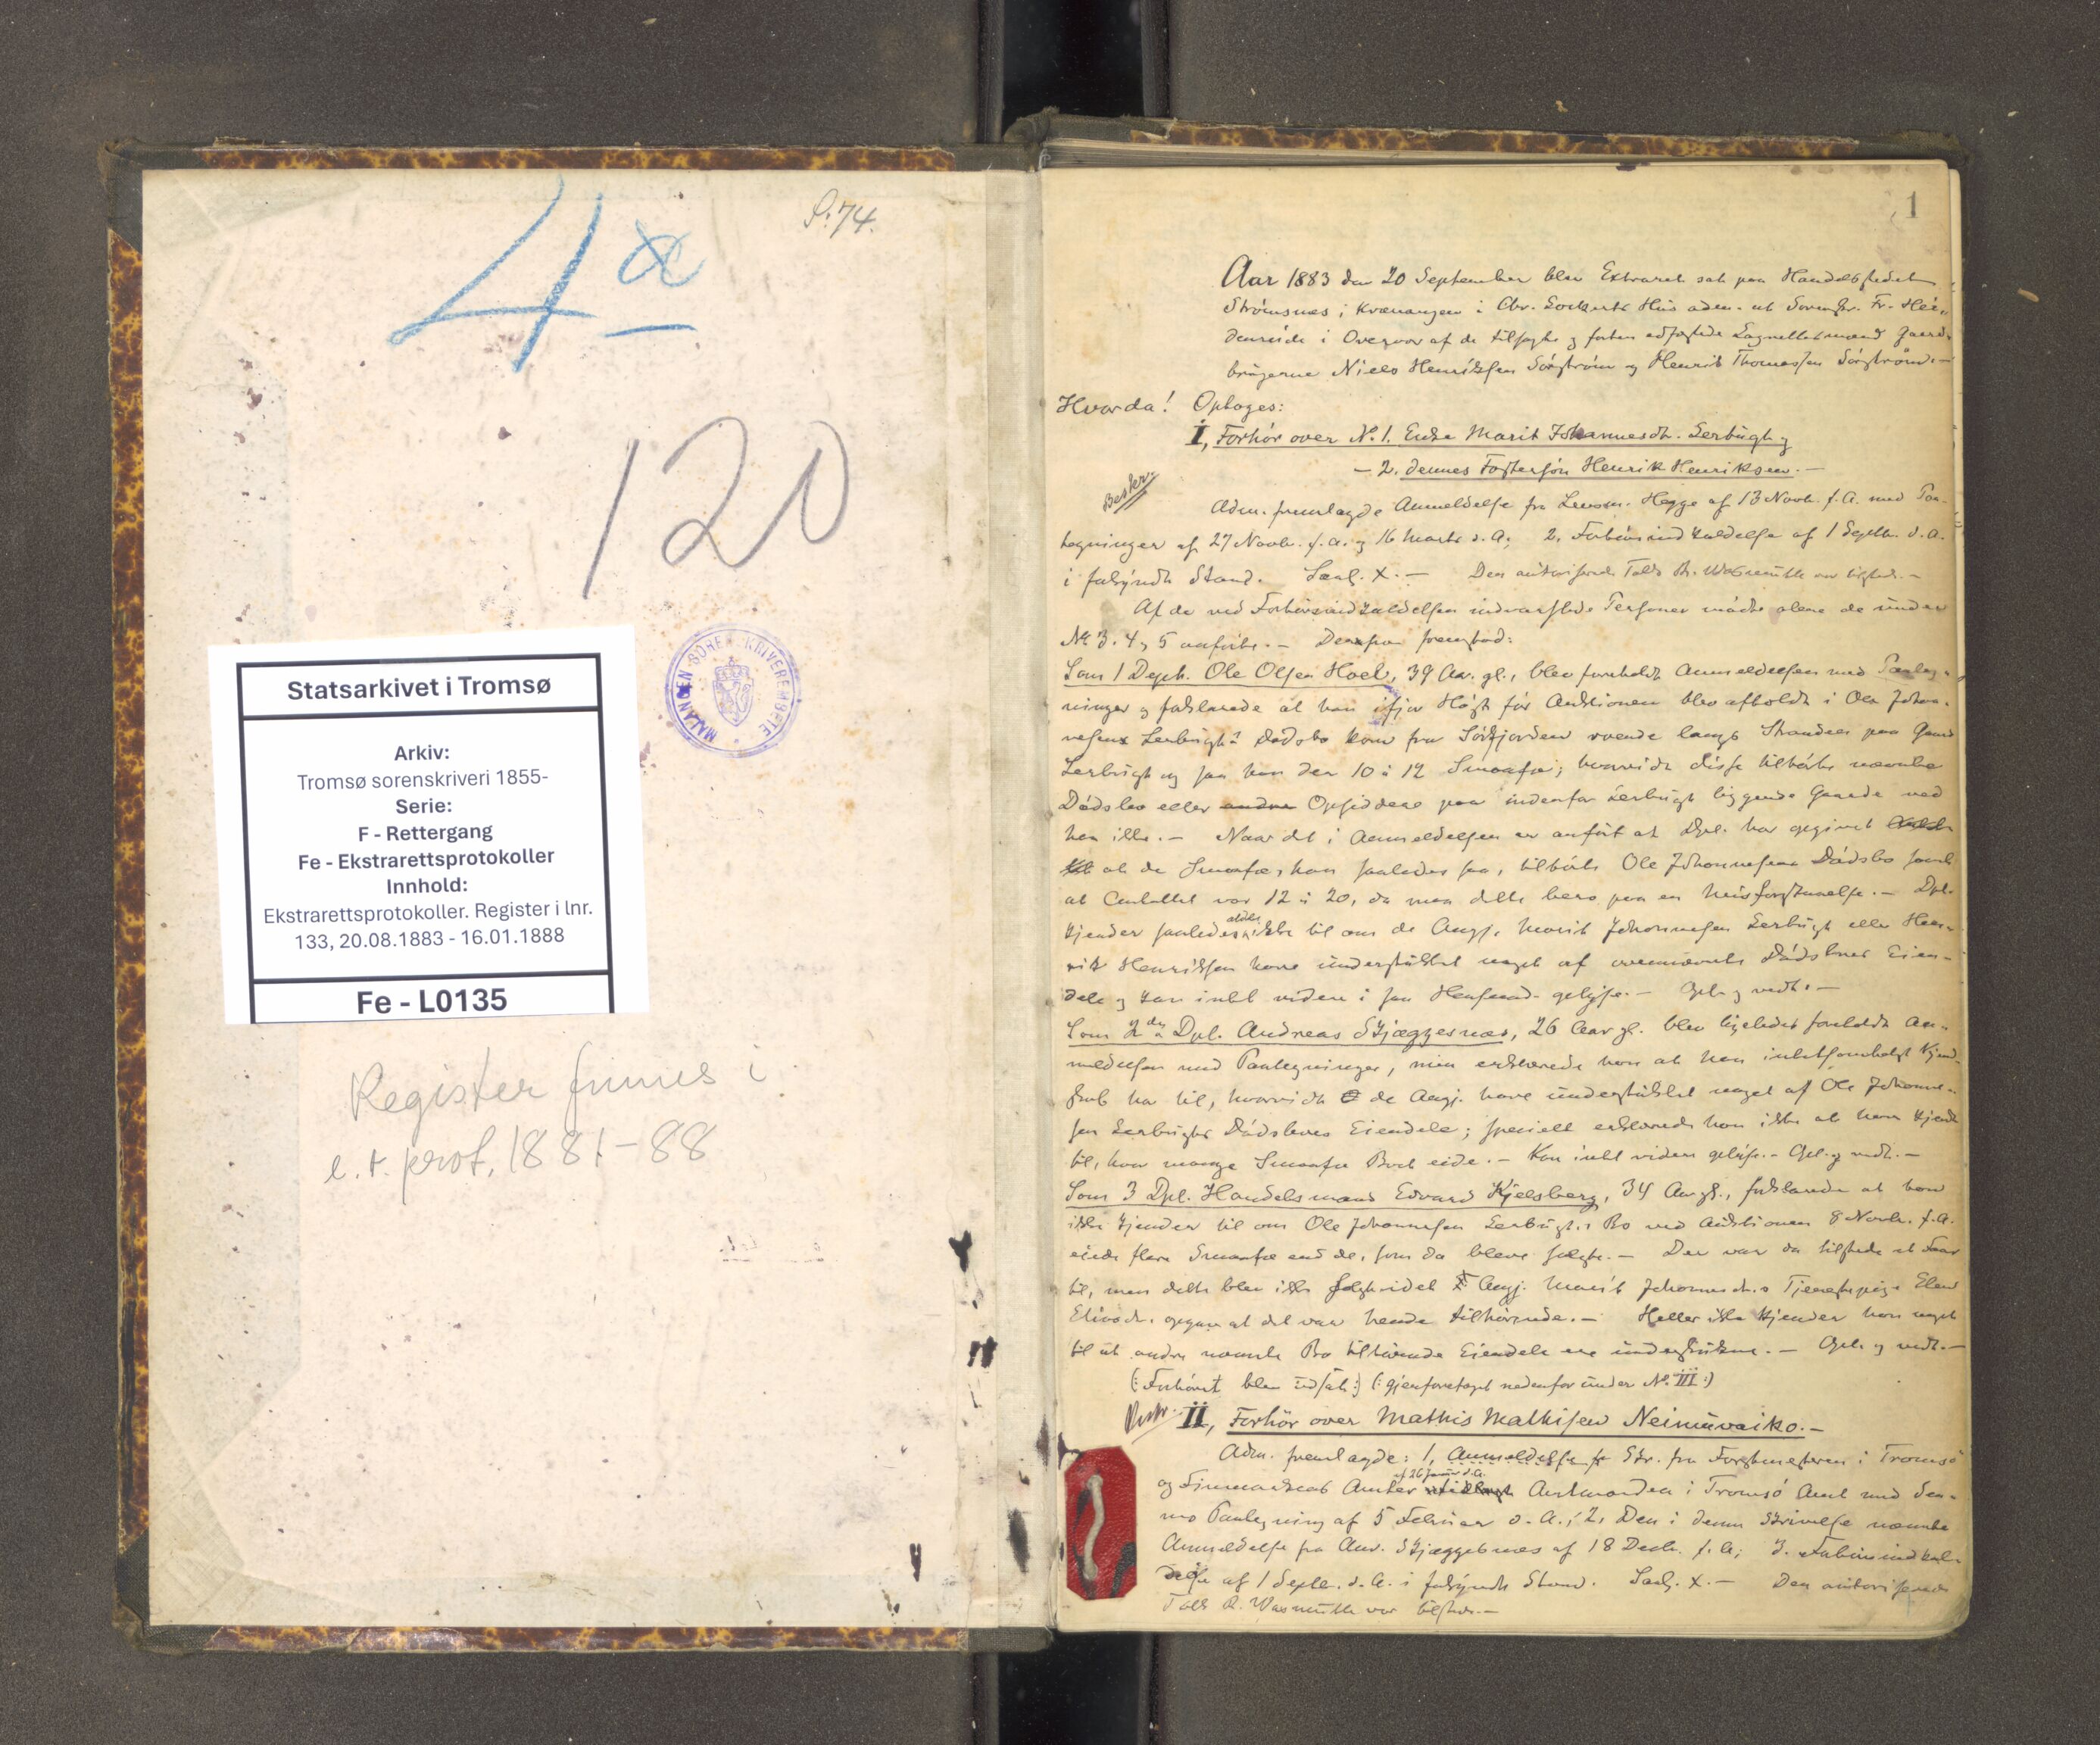 4a
P. 74.
120
MALANGEN SORENSKRIVEREMBETE
Statsarkivet i Tromsø
Arkiv:
Tromsø sorenskriveri 1855-
Serie:
F - Rettergang
Fe - Ekstrarettsprotokoller
Innhold:
Ekstrarettsprotokoller. Register i lnr.
133, 20.08.1883 - 16.01.1888
Fe - L0135
Register finnes i
e.r. prot. 1881-88
1
Aar 1883 den 20 September blev Extraret sat paa Handelsstedet
Strömsnæs i Kvænangen i Chr. Hus adm. af Sorenskr. Fr.
i Overvær af de tilsagte og forhen edfæstede Lagrettesmænd Gaard-
brugerne Niels Henriksen Sörström og Henrik Thomassen Sörström.-
Hvorda! Optoges:
I, Forhör over No. 1. Enke Marit Johannesdt. Lerbugt og
- 2. dennes Fostersön Henrik Henriksen.-
Beskr.
Adm. fremlagde Anmeldelse fra Lensm. Hegge af 13 Novb. f.A. med Paa-
tegninger af 27 Novb. f.A. og 16 Marts d.A; 2. Forhörsindkaldelse af 1 Septb. d.A.
i forkyndt Stand. Saal. X.- Den autoriserede Tolk R. Wasmuth var tilstede.-
Af de ved Forhörsindkaldelsen indvarslede Personer mödte alene de under
No 3. 4 og 5 anförte.- Derefter fremstod:
Som 1 Dept. Ole Olsen Hoel, 39 Aar gl., blev foreholdt Anmeldelsen med Paateg-
ninger og forklarede at han ifjor Höst för Auktionen blev afholdt i Ole Johan-
nesens Lerbugts Dödsbo kom fra Sörfjorden roende langs Stranden paa Gaard
Lerbugt og saa han der 10 à 12 Smaafæ; hvorvidt disse tilhörte nævnte
Dödsbo eller andre Opsiddere paa indenfor Lerbugt liggende Gaarde ved
han ikke.- Naar det i Anmeldelsen er anfört at Dpt. har opgivet
at de Smaafæ, han saaledes saa, tilhörte Ole Johannesens Dödsbo samt
at Antallet var 12 à 20, da maa dette bero paa en Misforstaaelse.- Dpt.
kjender saaledes aldeles ikke til om de Angj. Marit Johannesen Lerbugt eller Hen-
rik Henriksen have understukket noget af ovennævnte Dödsboes Eien-
dele og kan intet videre i saa Henseende oplyse.- Opl. og vedt.-
Som 2den Dpt. Andreas Skjæggesnæs, 26 Aar gl. blev ligeledes foreholdt An-
meldelsen med Paategninger, men erklærede han at han intetsomhelst Kjend-
skab har til, hvorvidt de Angj. have understukket noget af Ole Johanne-
sen Lerbugts Dödsboes Eiendele; specielt erklærede han ikke at have Kjendt
til, hvor mange Smaafæ Boet eide.- Kan intet videre oplyse.- Opl. og vedt.-
Som 3 Dpt. Handelsmand Edvard Kjelsberg, 34 Aar gl., forklarede at han
ikke kjender til om Ole Johannesen Lerbugts Bo ved Auktionen 8 Novb. f.A.
eiede flere Smaafæ end de, som da bleve solgte.- Der var da tilstede et Faar
til, men dette blev ikke solgt idet Angj. Marit Johannesdt.s Tjenestepige Elen
Eliasdt. opgav at det var hende tilhörende.- Heller ikke kjender han noget
til at andre nævnte Bo tilhörende Eiendele ere understukne.- Opl. og vedt.-
(: Forhöret blev udsat:) (: gjenforetaget nedenfor under No. III :)
Beskr. II, Forhör over Mathis Mathisen Neimuvaiko.-
Adm. fremlagde: 1, Anmeldelse fr Skr. fra Forstmesteren i Tromsö
af 26 Januar d.A.
og Finmarkens Amter Amtmanden i Tromsö Amt med den-
nes Paategning af 5 Februar d.A.; 2, Den i denne Skrivelse nævnte
Anmeldelse fra And. Skjæggesnæs af 18 Decb. f.A; 3. Forhörsindkal-
delse af 1 Septb. d.A. i forkyndt Stand. Saal. X.- Den autoriserede
Tolk R. Wasmuth var tilstede.-